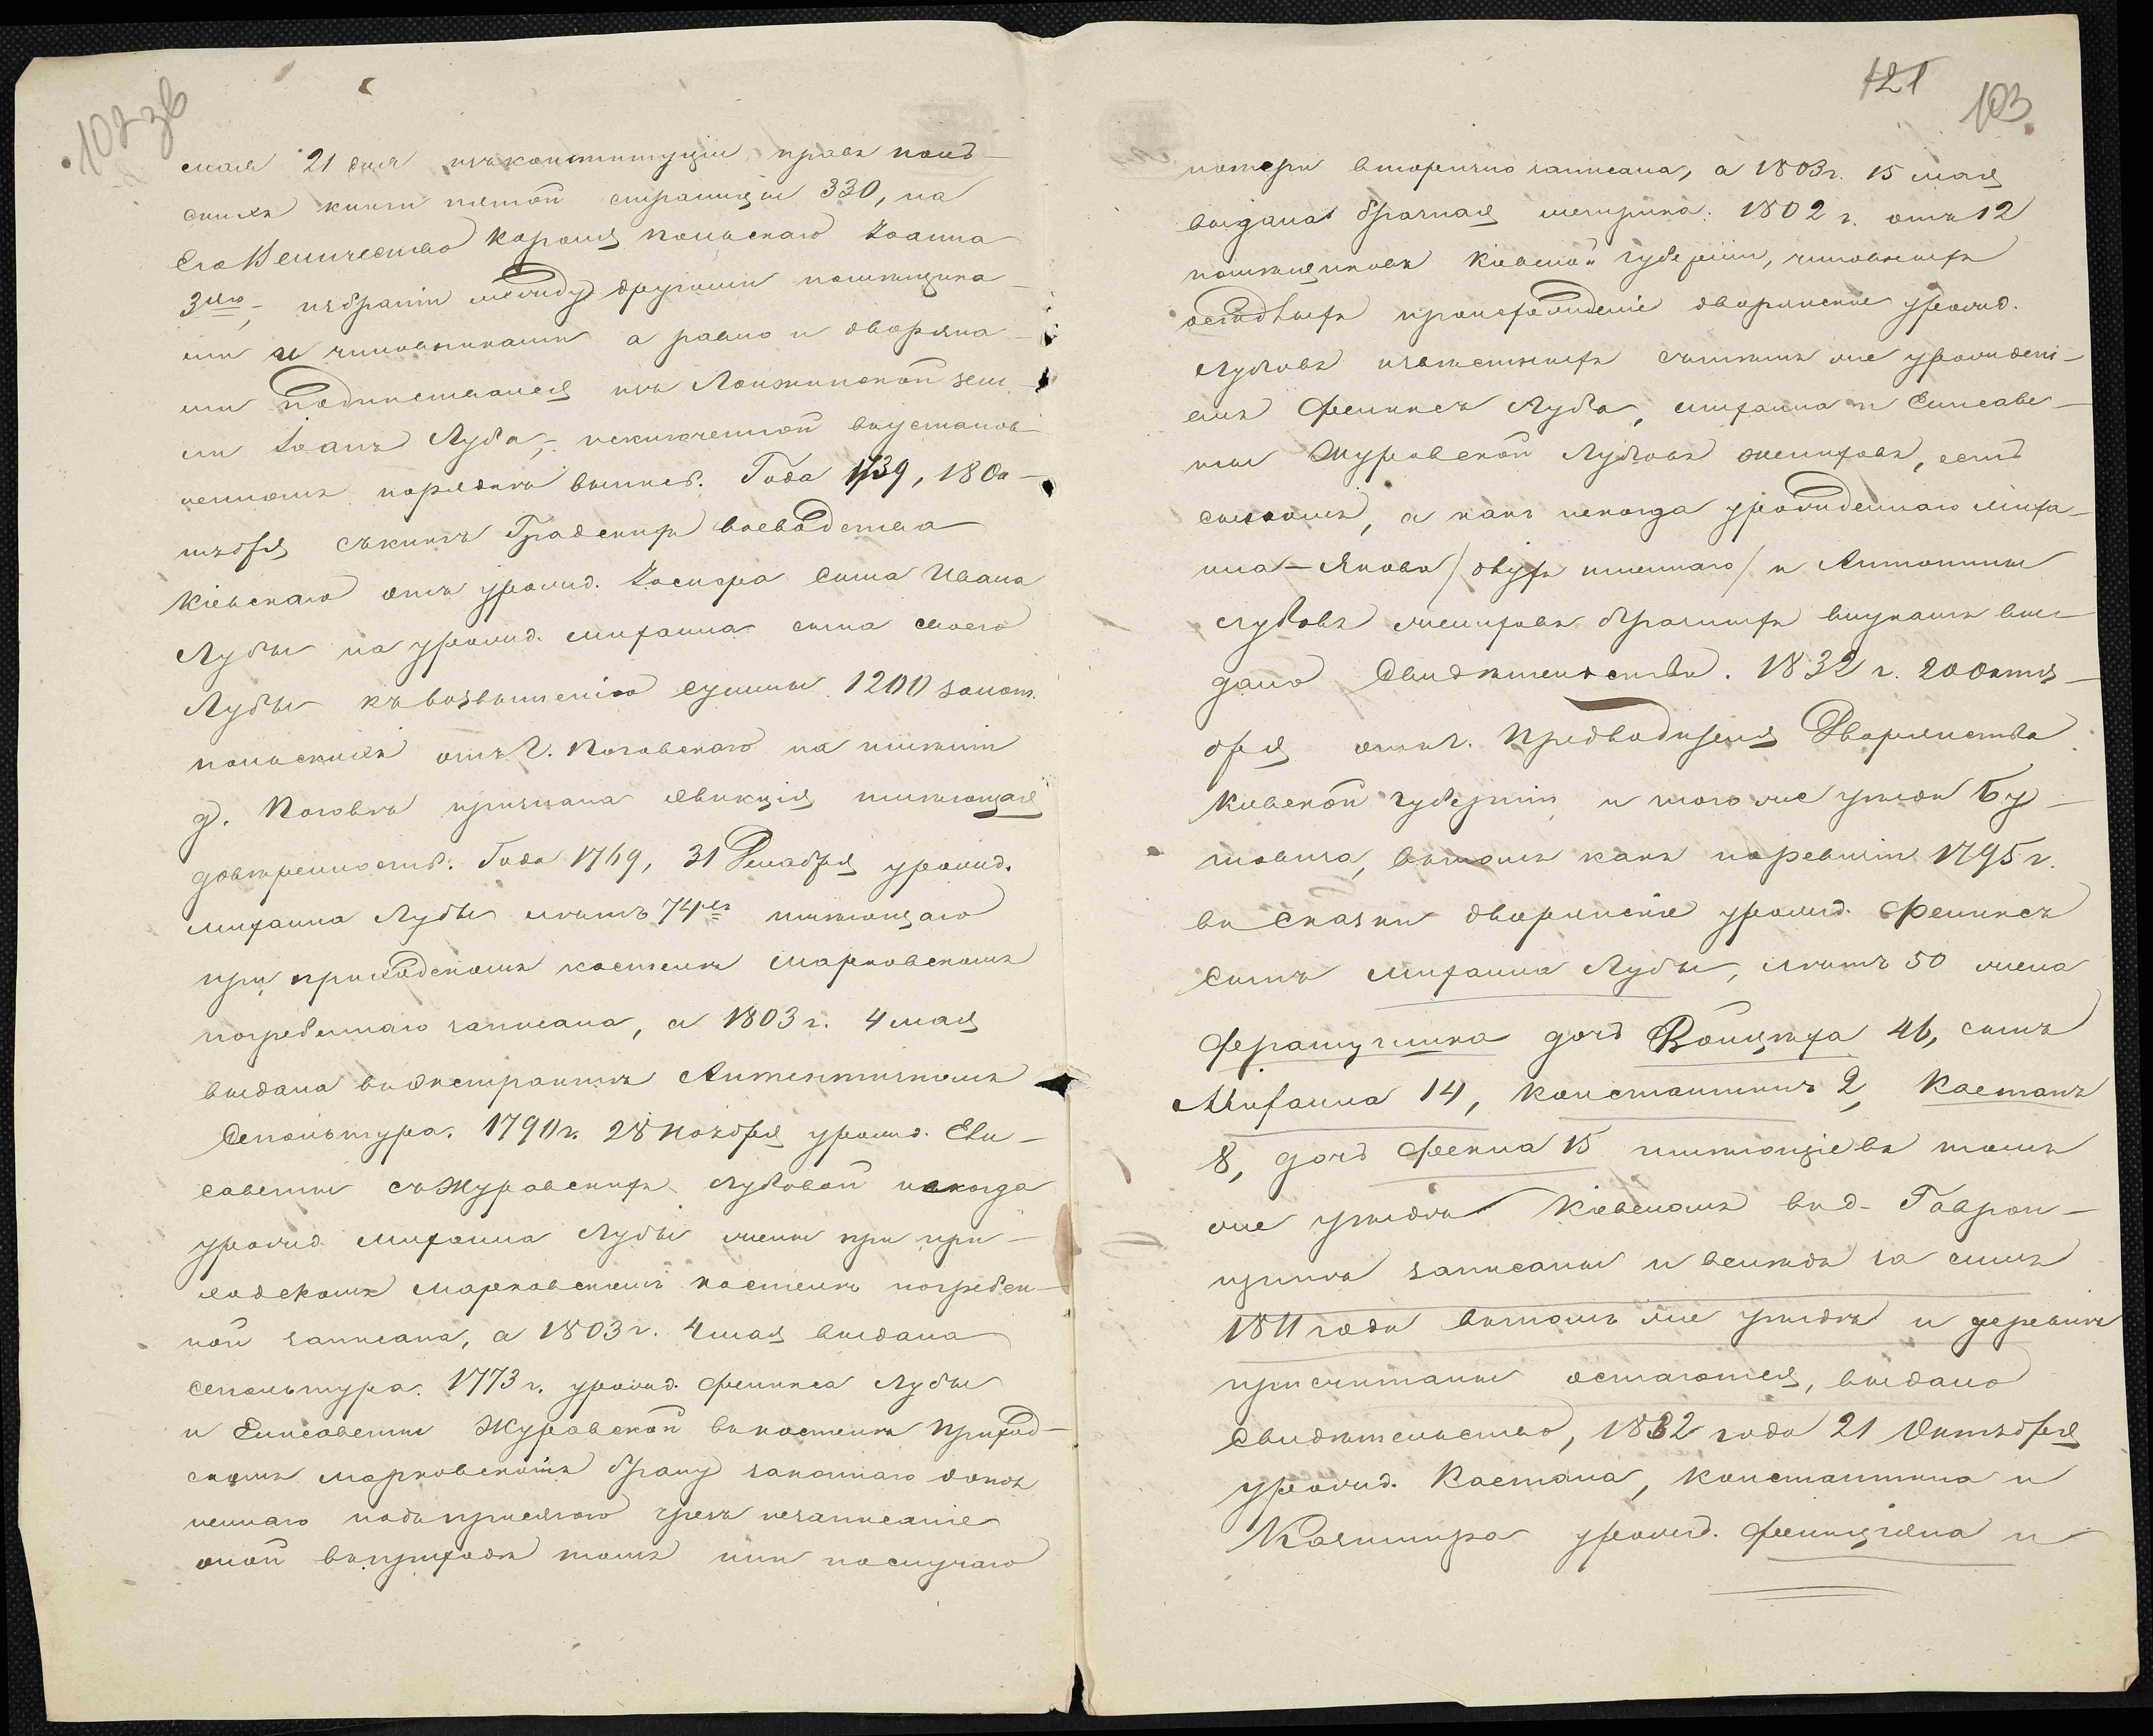 102 зв
мая 21 дня изъ конституціи правъ поль-
скихъ книги пятой страницы 330, на
Его Величество Короля польскаго Іоанна
3го, избраніи между другими помѣщика-
ми и чиновниками а равно и дворяна-
ми подписавшися изъ Ломжинской зем-
ли Іоанъ Луба, – исключенной в установ-
ленномъ порядкѣ выписъ. Года 1739, 18 Ок-
тября съ книгъ Градскихъ воеводства
Кіевскаго отъ урожд. Іосифа сына Ивана
Лубы на урожд. Михаила сына своего
Лубы къ возвышенію суммы 1200 золот.
польскихъ отъ Г. на имѣніи
д. признана эвикція имѣющая
довѣренность. Года 1769, 31 Декабря урожд.
Михаила Лубы лѣтъ 74ех имѣющаго
при приходскомъ костелѣ Марковскомъ
погребеннаго записана, а 1803 г. 4 мая
выдана въ экстрактѣ Антентичномъ
Сепольтура. 1790 г. 28 Ноября урожд. Ели-
саветы съ Журавскихъ Лубовой некогда
урожд. Михаила Лубы жены при при-
ходскомъ Марковскомъ костелѣ погребен-
ной записана, а 1803 г. 4 мая выдана
сепольтура. 1773 г. урожд. Феликса Лубы
и Елисаветы Журавской в костелѣ Приход-
скомъ Марковскомъ браку законнаго
неннаго подъ присягою чрезъ незаписаніе
оной въ томъ или по случаю
121
103
потери вторично записана, а 1803 г. 15 мая
выдана брачная метрика. 1802 г. отъ 12
помѣщиковъ Кіевской губерніи, чиновныхъ
происхожденіе дворянские урожд.
Лубовъ извѣстныхъ съ тѣмъ же урожден-
емъ Феликсъ Луба, Михаила и Елисаве-
ты Журавской Лубовъ женитовъ, есть
сыномъ, а какъ некогда урожденнаго Миха-
ила – Якова / двухъ имѣннаго / и Антонины
Лубовъ женитовъ брачныхъ внукамъ вы-
дано Свидѣтельство. 1832 г. 20 Октя-
бря отъ Г. Предводителя Дворянства
Киевской губерніи и того же уѣзда Бу-
товича, въ томъ какъ по ревизіи 1795 г.
въ сказки дворянскіе урожд. Феликсъ
сынъ Михаила Лубы, лѣтъ 50 жена
Францишка дочь Войцѣха 46, сынъ
Михаила 14, Константинъ 2, Каетанъ
8, дочь Фекла 15 имѣющіе въ томъ
же уѣздѣ Кіевскомъ в д. Гаврон-
щинѣ записаны и вслѣдъ за симъ
1811 года въ томъ же уѣздѣ и деревни
причитаны остаются, выдано
Свидѣтельство, 1832 года 21 Октября
урожд. Каетана, Константина и
Казимира урожд. Фелиціяна и